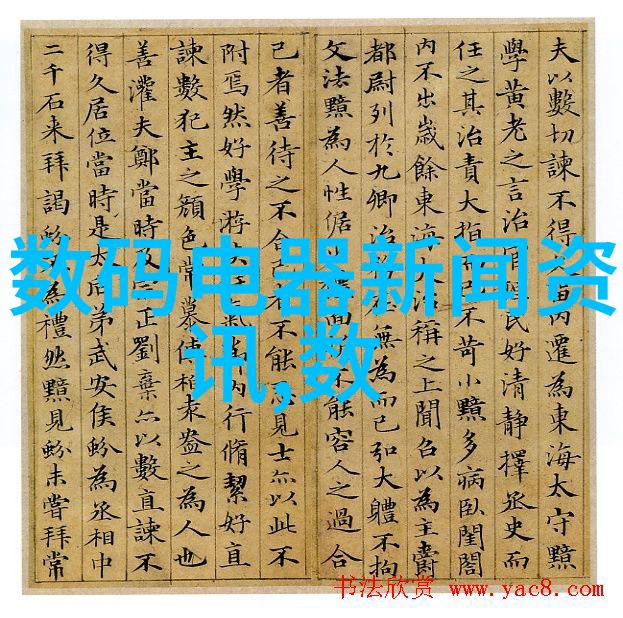 夫以數切諫不得內遷為東海太守黯
學黃老之言治民好清靜擇丞史而
任之其治責大指而已不苛小黯多病臥閨閤
內不出歲餘東海大治稱之上聞召以為主爵
都尉列於九卿治無為而已弘大體不拘
文法黯為人性倨面不能容人之過合
己者善待之不合己者不能見士亦以此不
附焉然好學游內行脩絜好直
諫數犯主之顏色常慕傅柏袁盎之為人也
善灌夫鄭當時及正劉棄亦以數直諫不
得久居位當時是太后弟武安侯蚡為丞相中
二千石来拜謁蚡為禮然黯見蚡未嘗拜常
数码电器新闻资
讯,数
书法欣赏 www.yac8.com